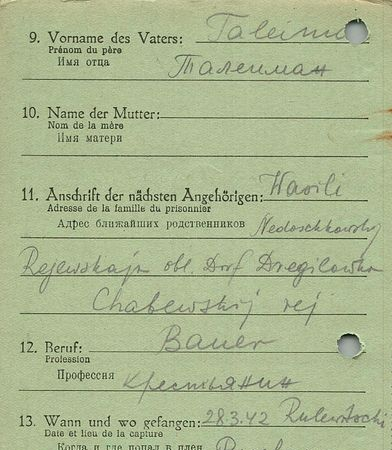 9. Vorname des Vaters: Taleim
Prénom du père
Имя отца
Талейман
10. Name der Mutter:
Nom de la mère
Имя матери
11. Anschrift der nächsten Angehörigen: Wasili
Adresse de la famille du prisonnier
Адрес ближайших родственников Nedoschkowskij
Rejewskaja obl. Dorf Dregilowka
Chabewskij rej
12. Beruf: Bauer
Profession
Профессия крестьянин
13. Wann und wo gefangen: 28.3.42
Date et lieu de la capture
Когда и где попал в плен